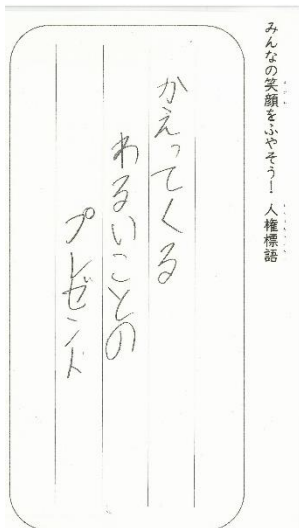 みんなの笑顔をふやそう！ 人権標語
かえってくる
わるいことの
プレゼント